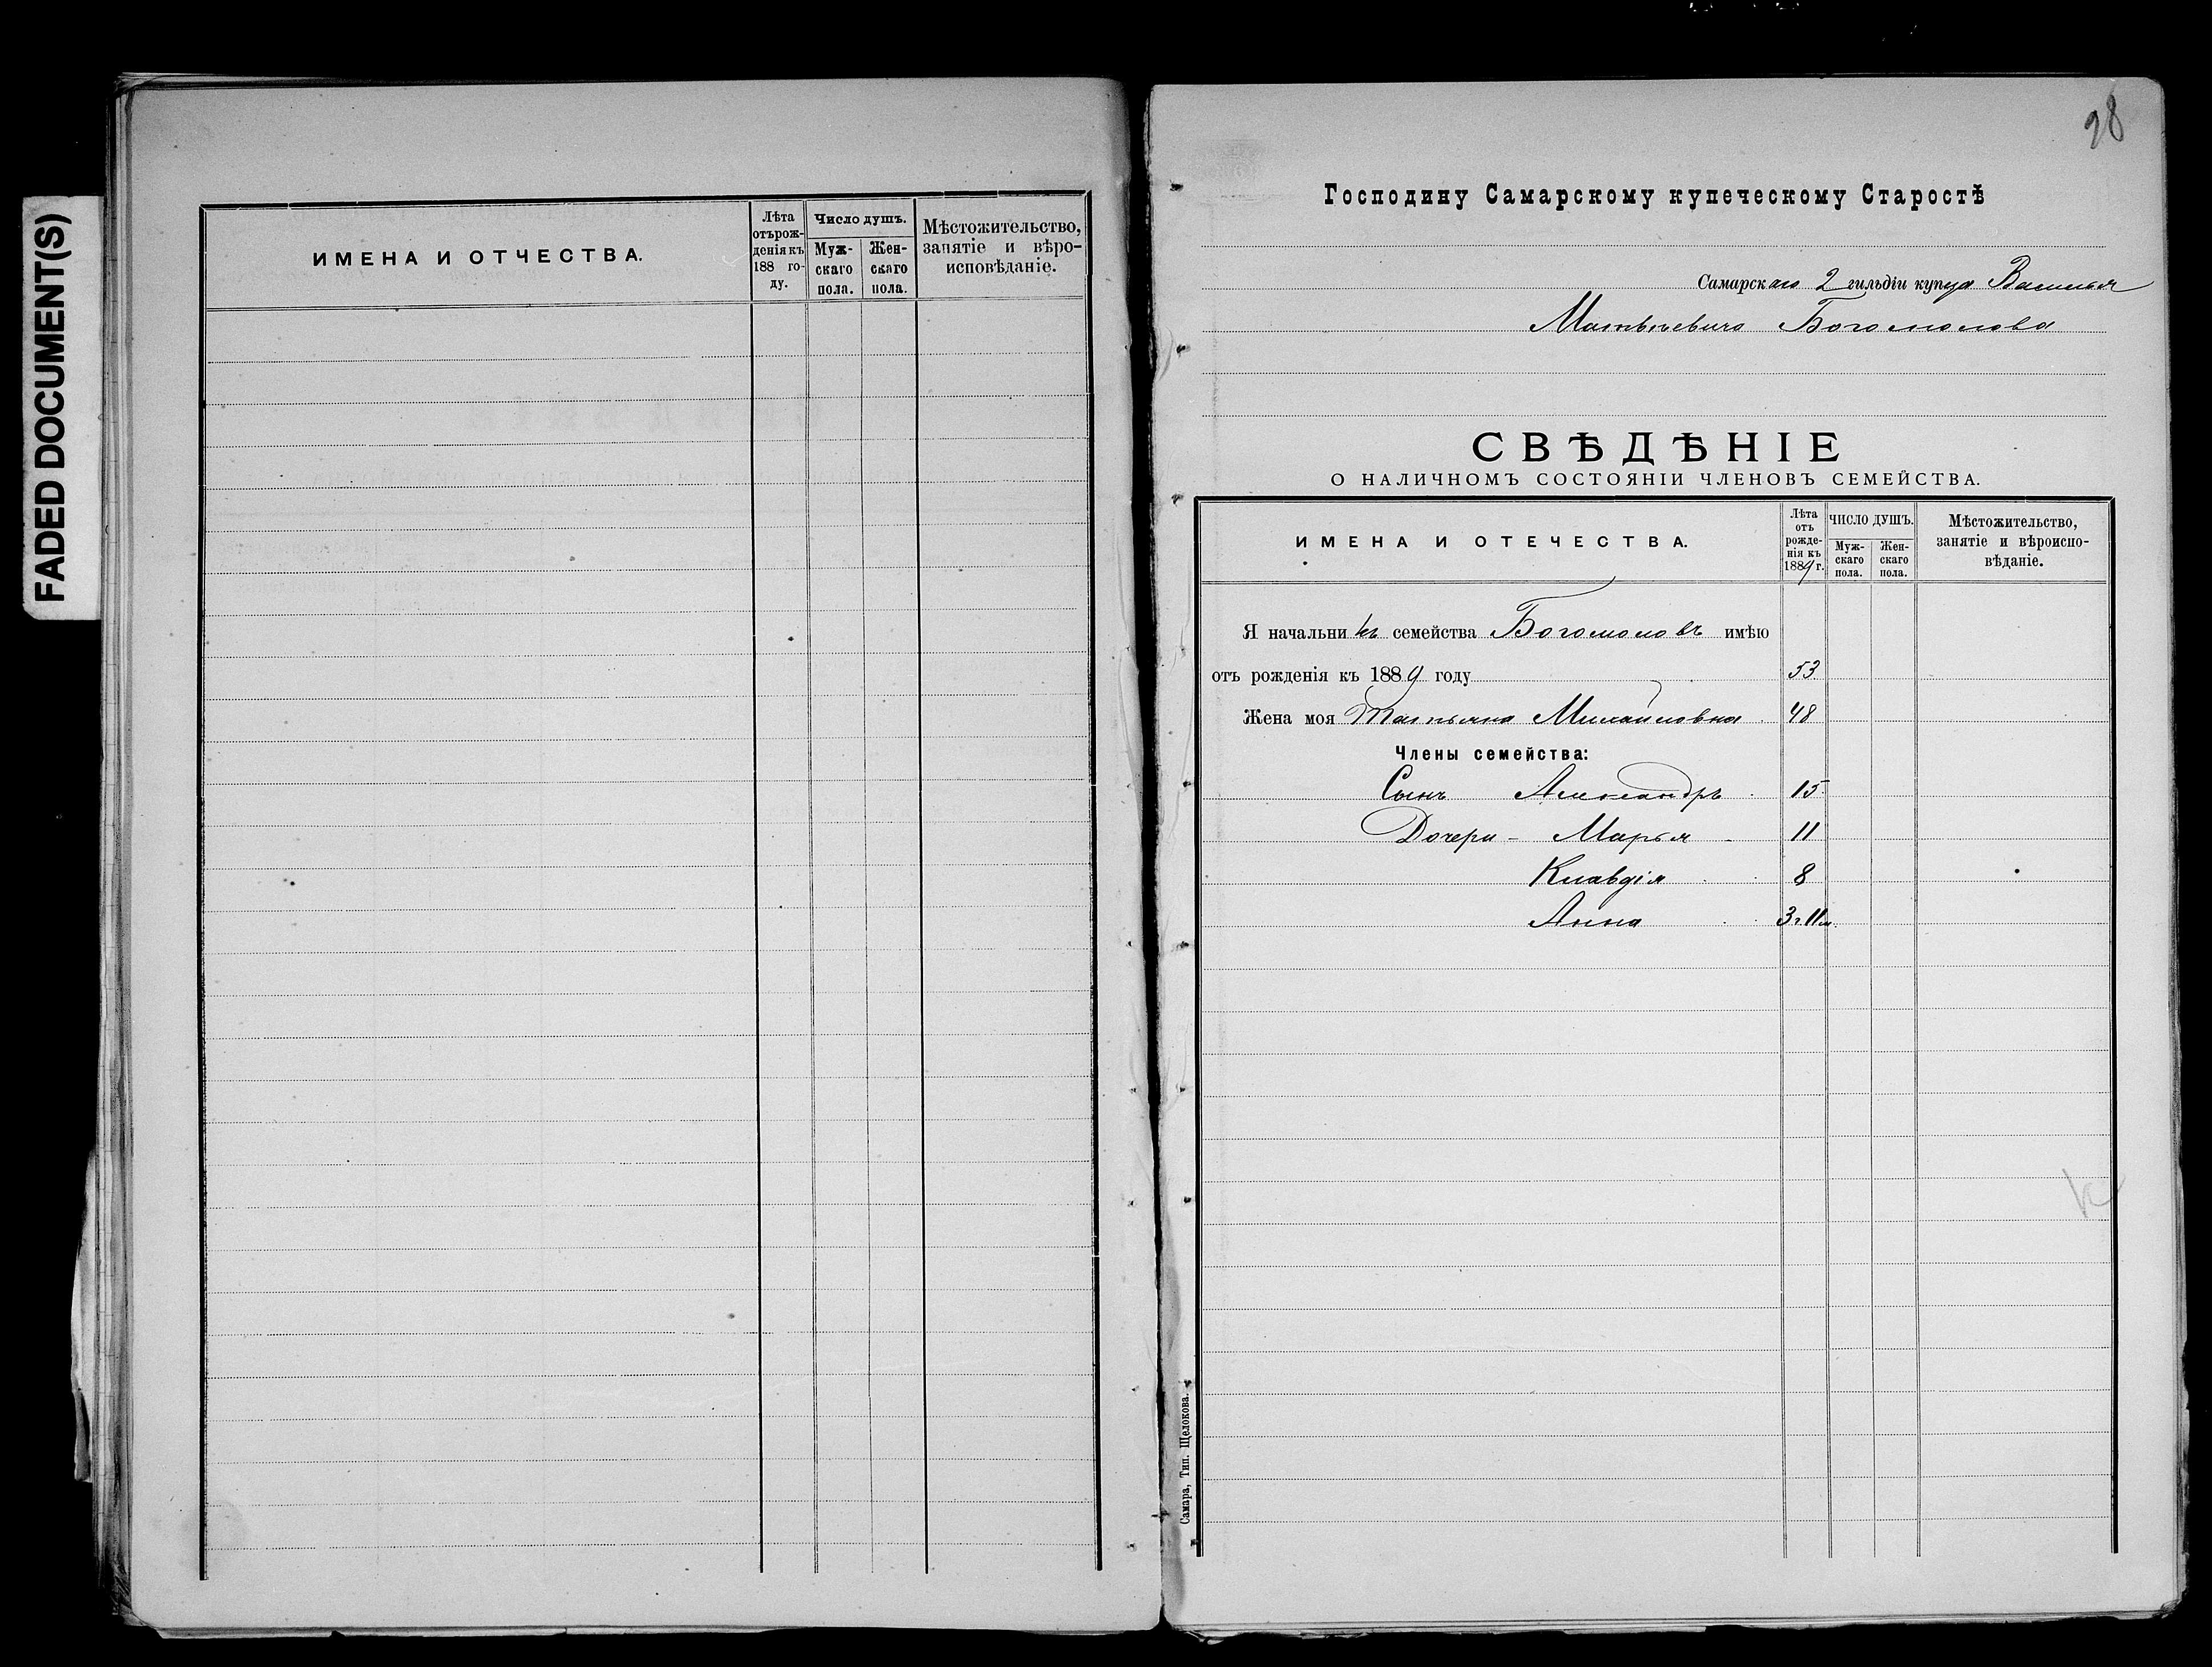 FADED DOCUMENT(S)
ИМЕНА И ОТЧЕСТВА.
Лѣта отърож-
денія къ
188 го-
ду.
Число душъ.
Муж-
скаго
пола.
Жен-
скаго
пола.
Мѣстожительство,
занятіе и вѣро-
исповѣданіе.
98
Господину Самарскому купеческому Старостѣ
Самарскаго 2 гильдіи купца Василья
Матвѣевича Богомолова
СВѢДѢНІЕ
О НАЛИЧНОМЪ СОСТОЯНІИ ЧЛЕНОВЪ СЕМЕЙСТВА.
ИМЕНА И ОТЕЧЕСТВА.
Лѣта
отъ
рожде-
нія къ
1889 г.
ЧИСЛО ДУШЪ.
Муж-
скаго
пола.
Жен-
скаго
пола.
Мѣстожительство,
занятіе и вѣроиспо-
вѣданіе.
Я начальникъ семейства Богомоловъ имѣю
отъ рожденія къ 1889 году 53
Жена моя Татьяна Михайловна 48
Члены семейства:
Сынъ Александръ 15
Дочери - Марья - 11
Клавдія 8
Анна 3 г. 11 м.
Самара, Тип. Щелокова.